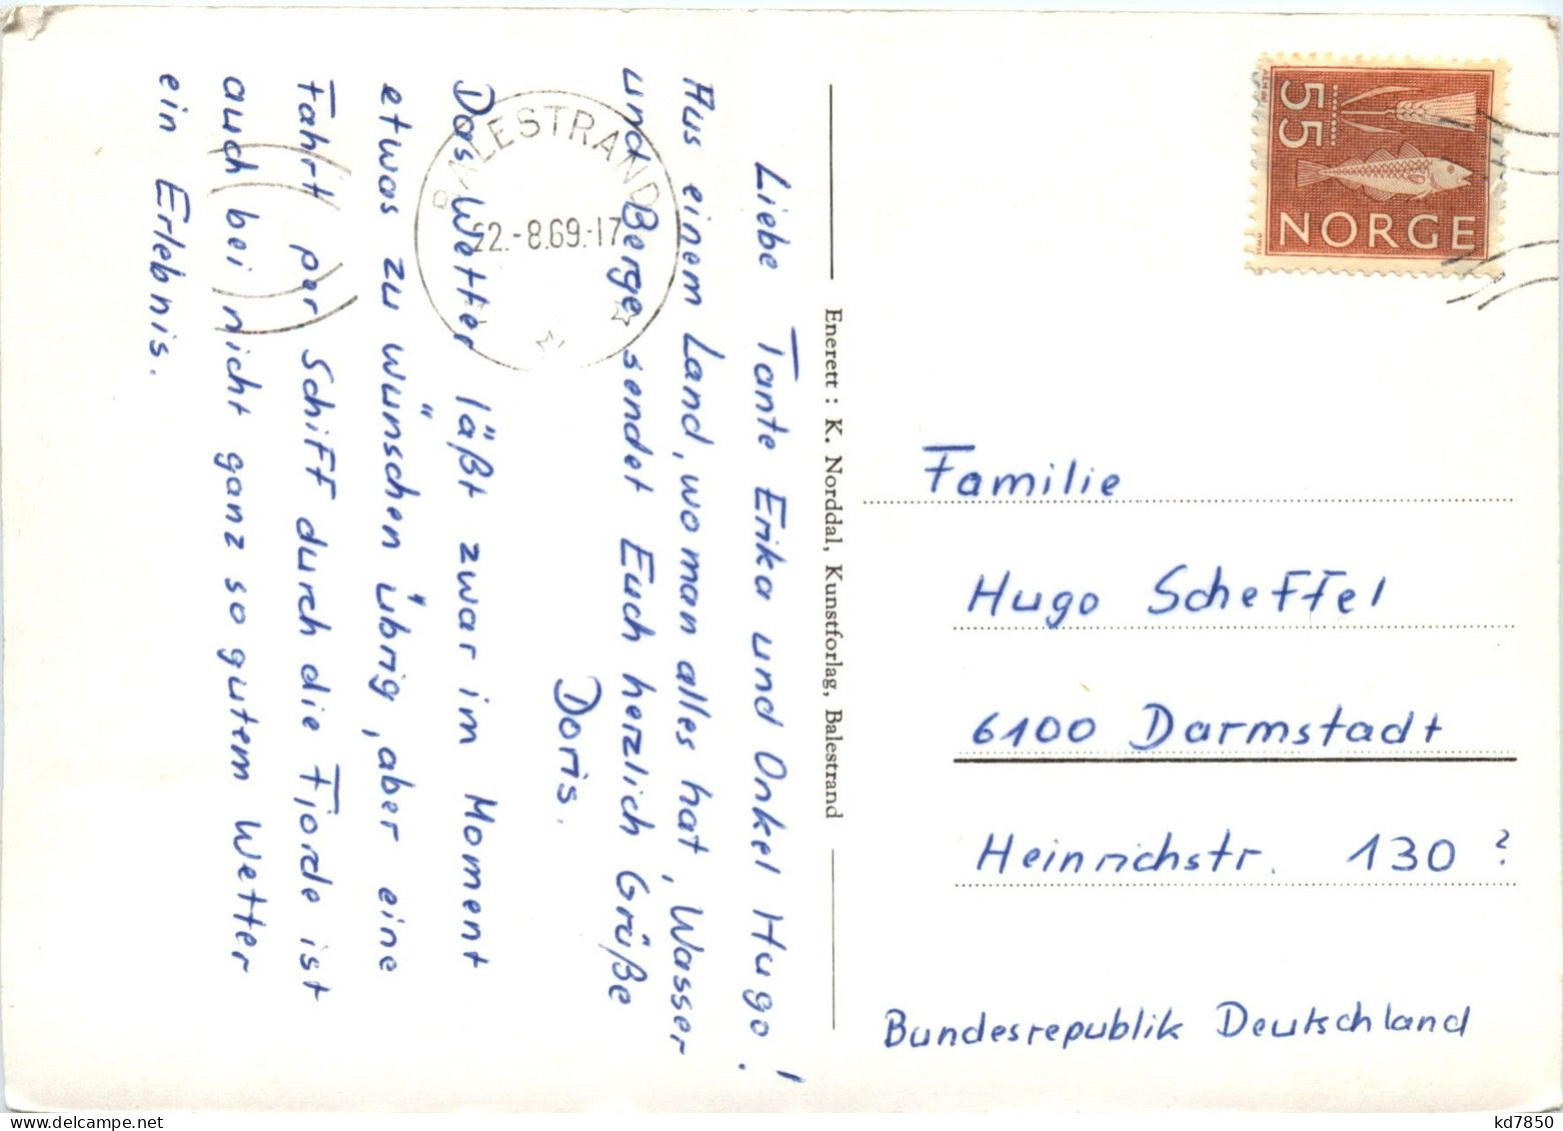 Liebe Tante Erika und Onkel Hugo!
Aus einem Land, wo man alles hat, Wasser
und Berge sendet Euch herzlich Grüße
Doris.
Das Wetter läßt zwar im Moment
etwas zu wünschen übrig, aber eine
Fahrt per Schiff durch die Fjorde ist
auch bei nicht ganz so gutem Wetter
ein Erlebnis.
BALESTRAND
22.-8.69.-17
Enerett: K. Norddal, Kunstforlag, Balestrand
55
NORGE
Familie
Hugo Scheffel
6100 Darmstadt
Heinrichstr. 130 ?
Bundesrepublik Deutschland
kd7850